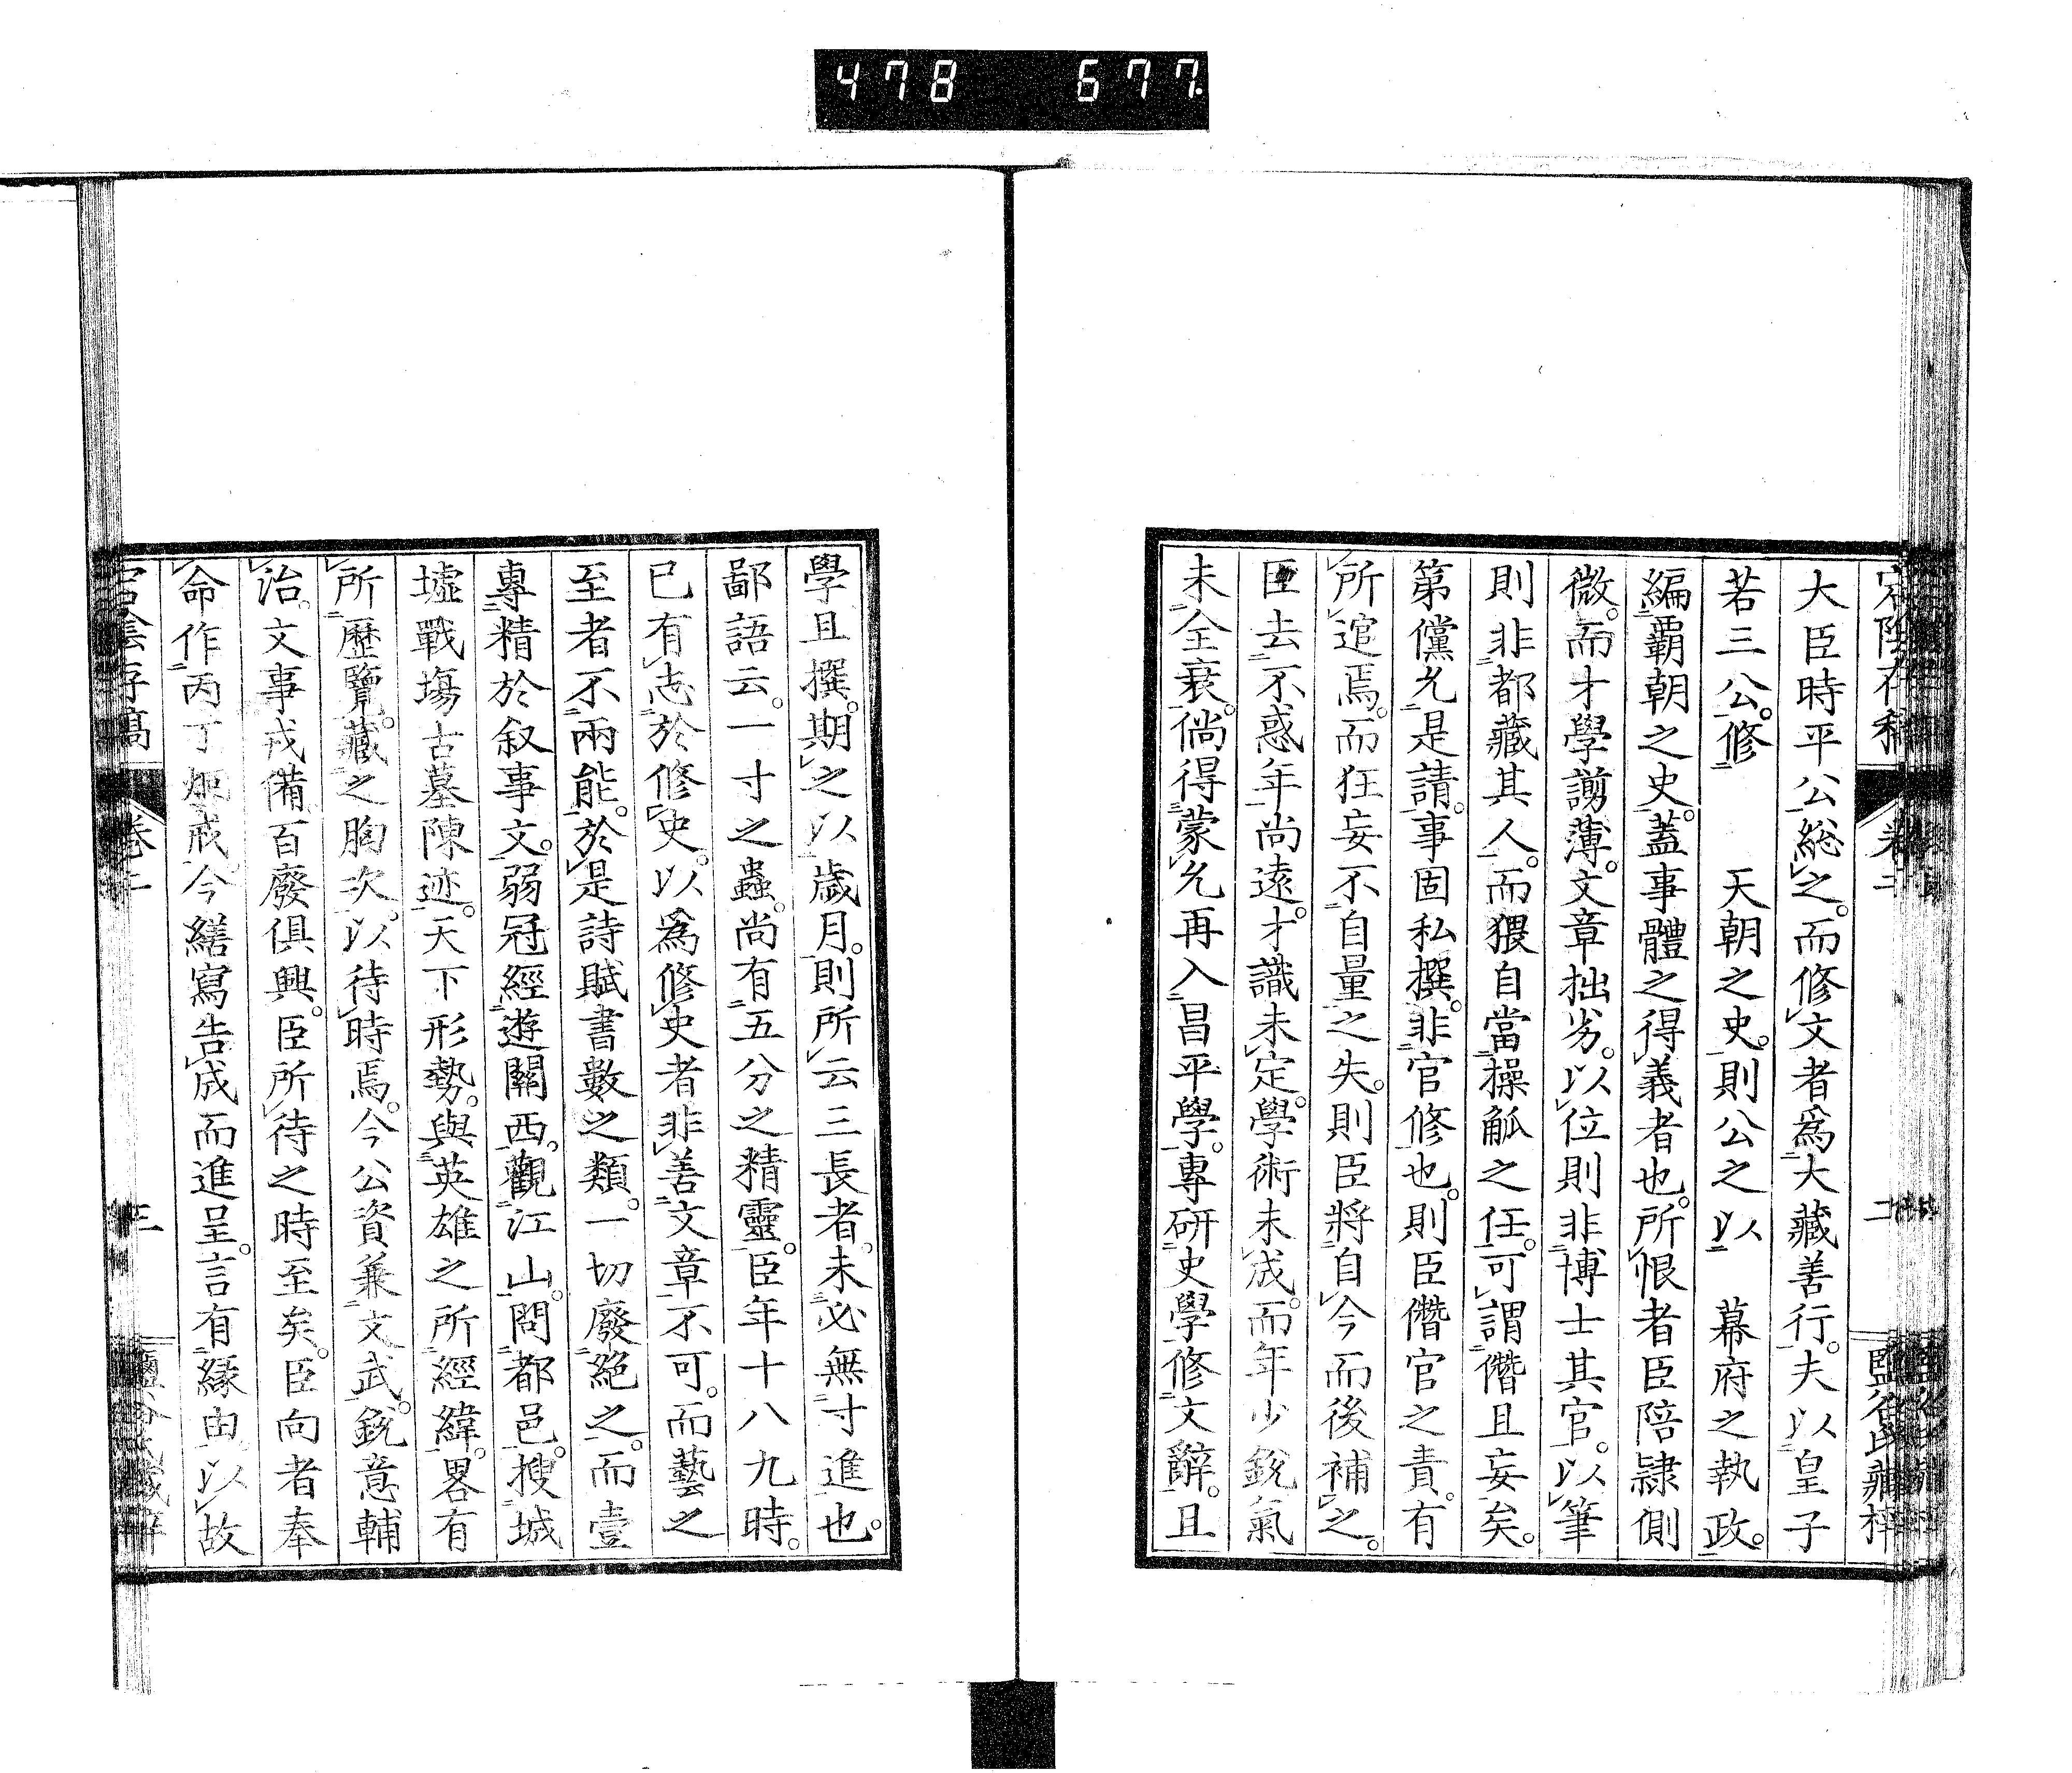 478 677.
大臣時平公總之。而修文者爲大藏善行。夫以皇子
若三公。修　天朝之史。則公之以　幕府之執政。
編覇朝之史。蓋事體之得義者也。所恨者臣陪隷側
微。而才學謭薄。文章拙劣。以位則非博士其官。以筆
則非都藏其人。而猥自當操觚之任。可謂僭且妄矣。
第儻允是請。事固私撰。非官修也。則臣僭官之責。有
所逭焉。而狂妄不自量之失。則臣將自今而後補之。
臣去不惑年尚遠。才識未定。學術未成。而年少銳氣
未全衰。倘得蒙允再入昌平學。專研史學修文辭。且
學且撰。期之以歲月。則所云三長者。未必無寸進也。
鄙語云。一寸之蟲。尚有五分之精靈。臣年十八九時。
已有志於修史。以爲修史者非善文章不可。而藝之
至者不兩能。於是詩賦書數之類。一切廢絕之。而壹
專精於叙事文。弱冠經遊關西。觀江山。問都邑。搜城
墟戰塲古墓陳迹。天下形勢。與英雄之所經緯。畧有
所歷覽。藏之胸次。以待時焉。今公資兼文武。銳意輔
治。文事戎備。百廢俱興。臣所待之時至矣。臣向者奉
命作丙丁炯戒。今繕寫告成而進呈。言有緣由。以故
宕陰存稿 卷二 三